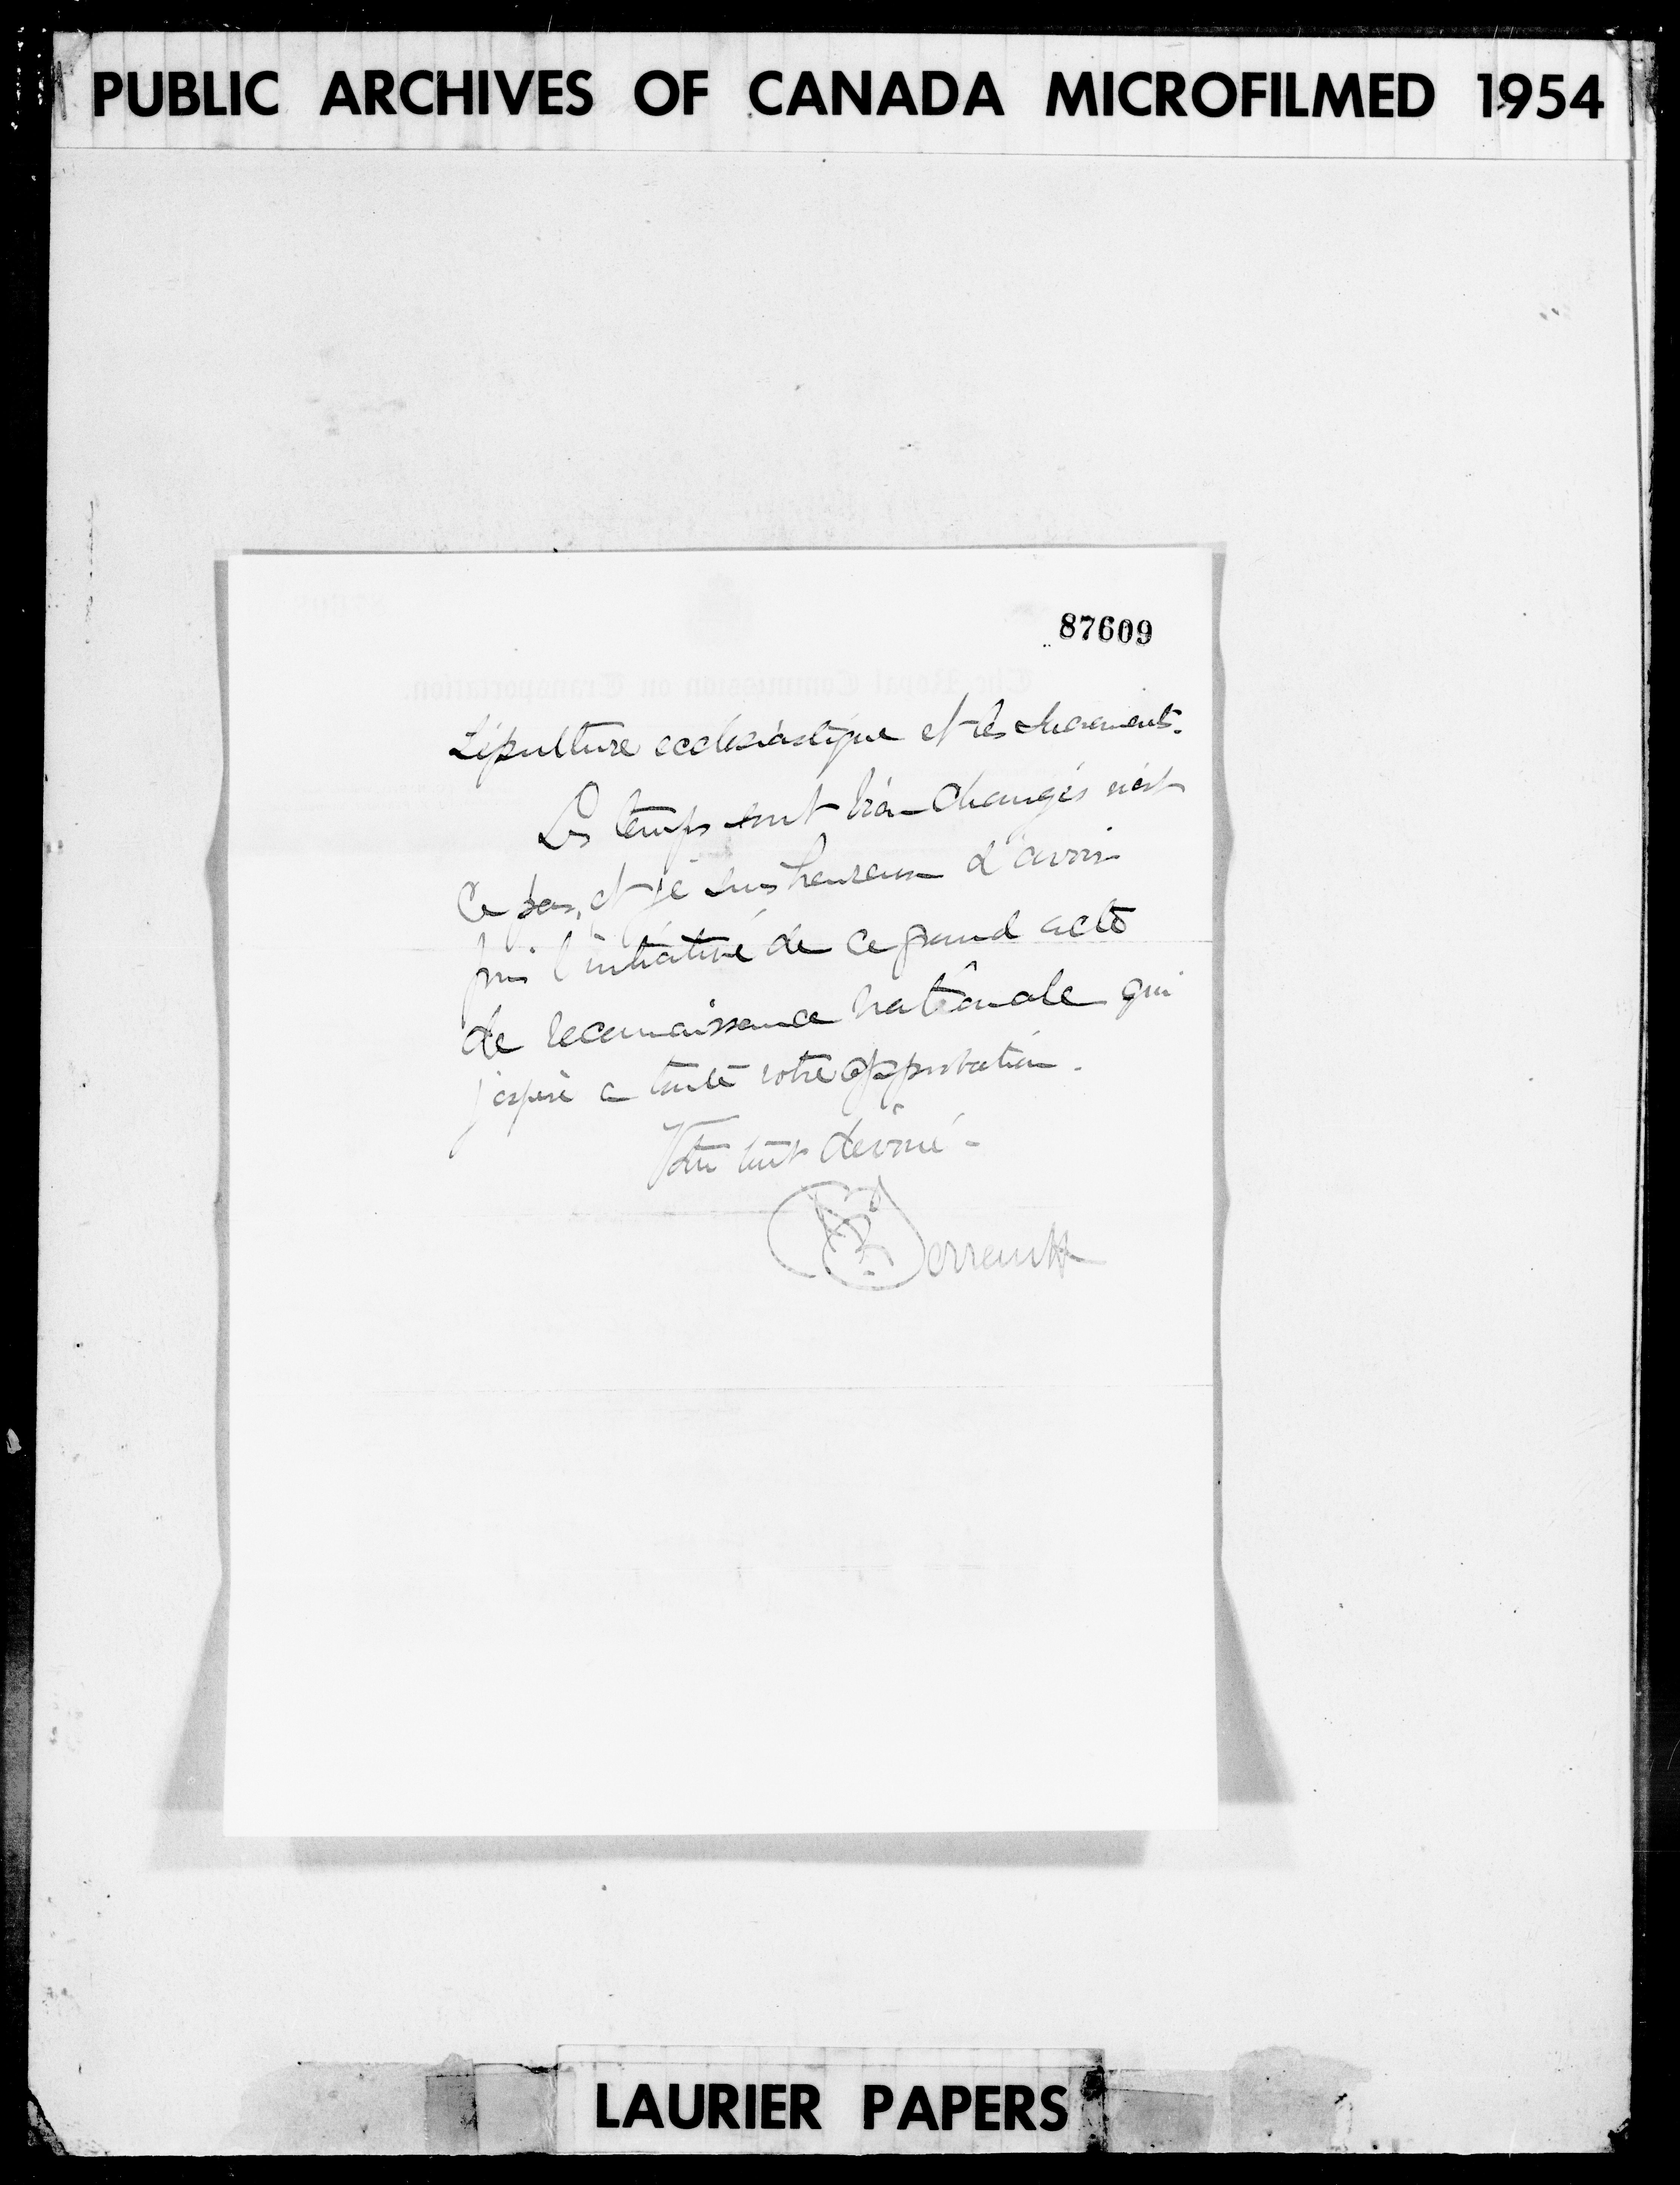 PUBLIC ARCHIVES OF CANADA MICROFILMED 1954
87609
The Royal Commission on Transportation.
Sépulture ecclésiastique et les Sacrements.
Les temps sont bien changés n'est
ce pas, et je suis heureux d'avoir
pris l'initiative de ce grand acte
de reconnaissance nationale qui
j'espère a toute votre approbation.
Votre tout dévoué
Perrault
LAURIER PAPERS